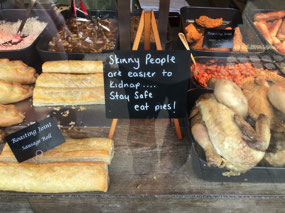 Skinny People
are easier to
Kidnap....
Stay Safe
eat pies!
Roasting Joint
Sausage Roll